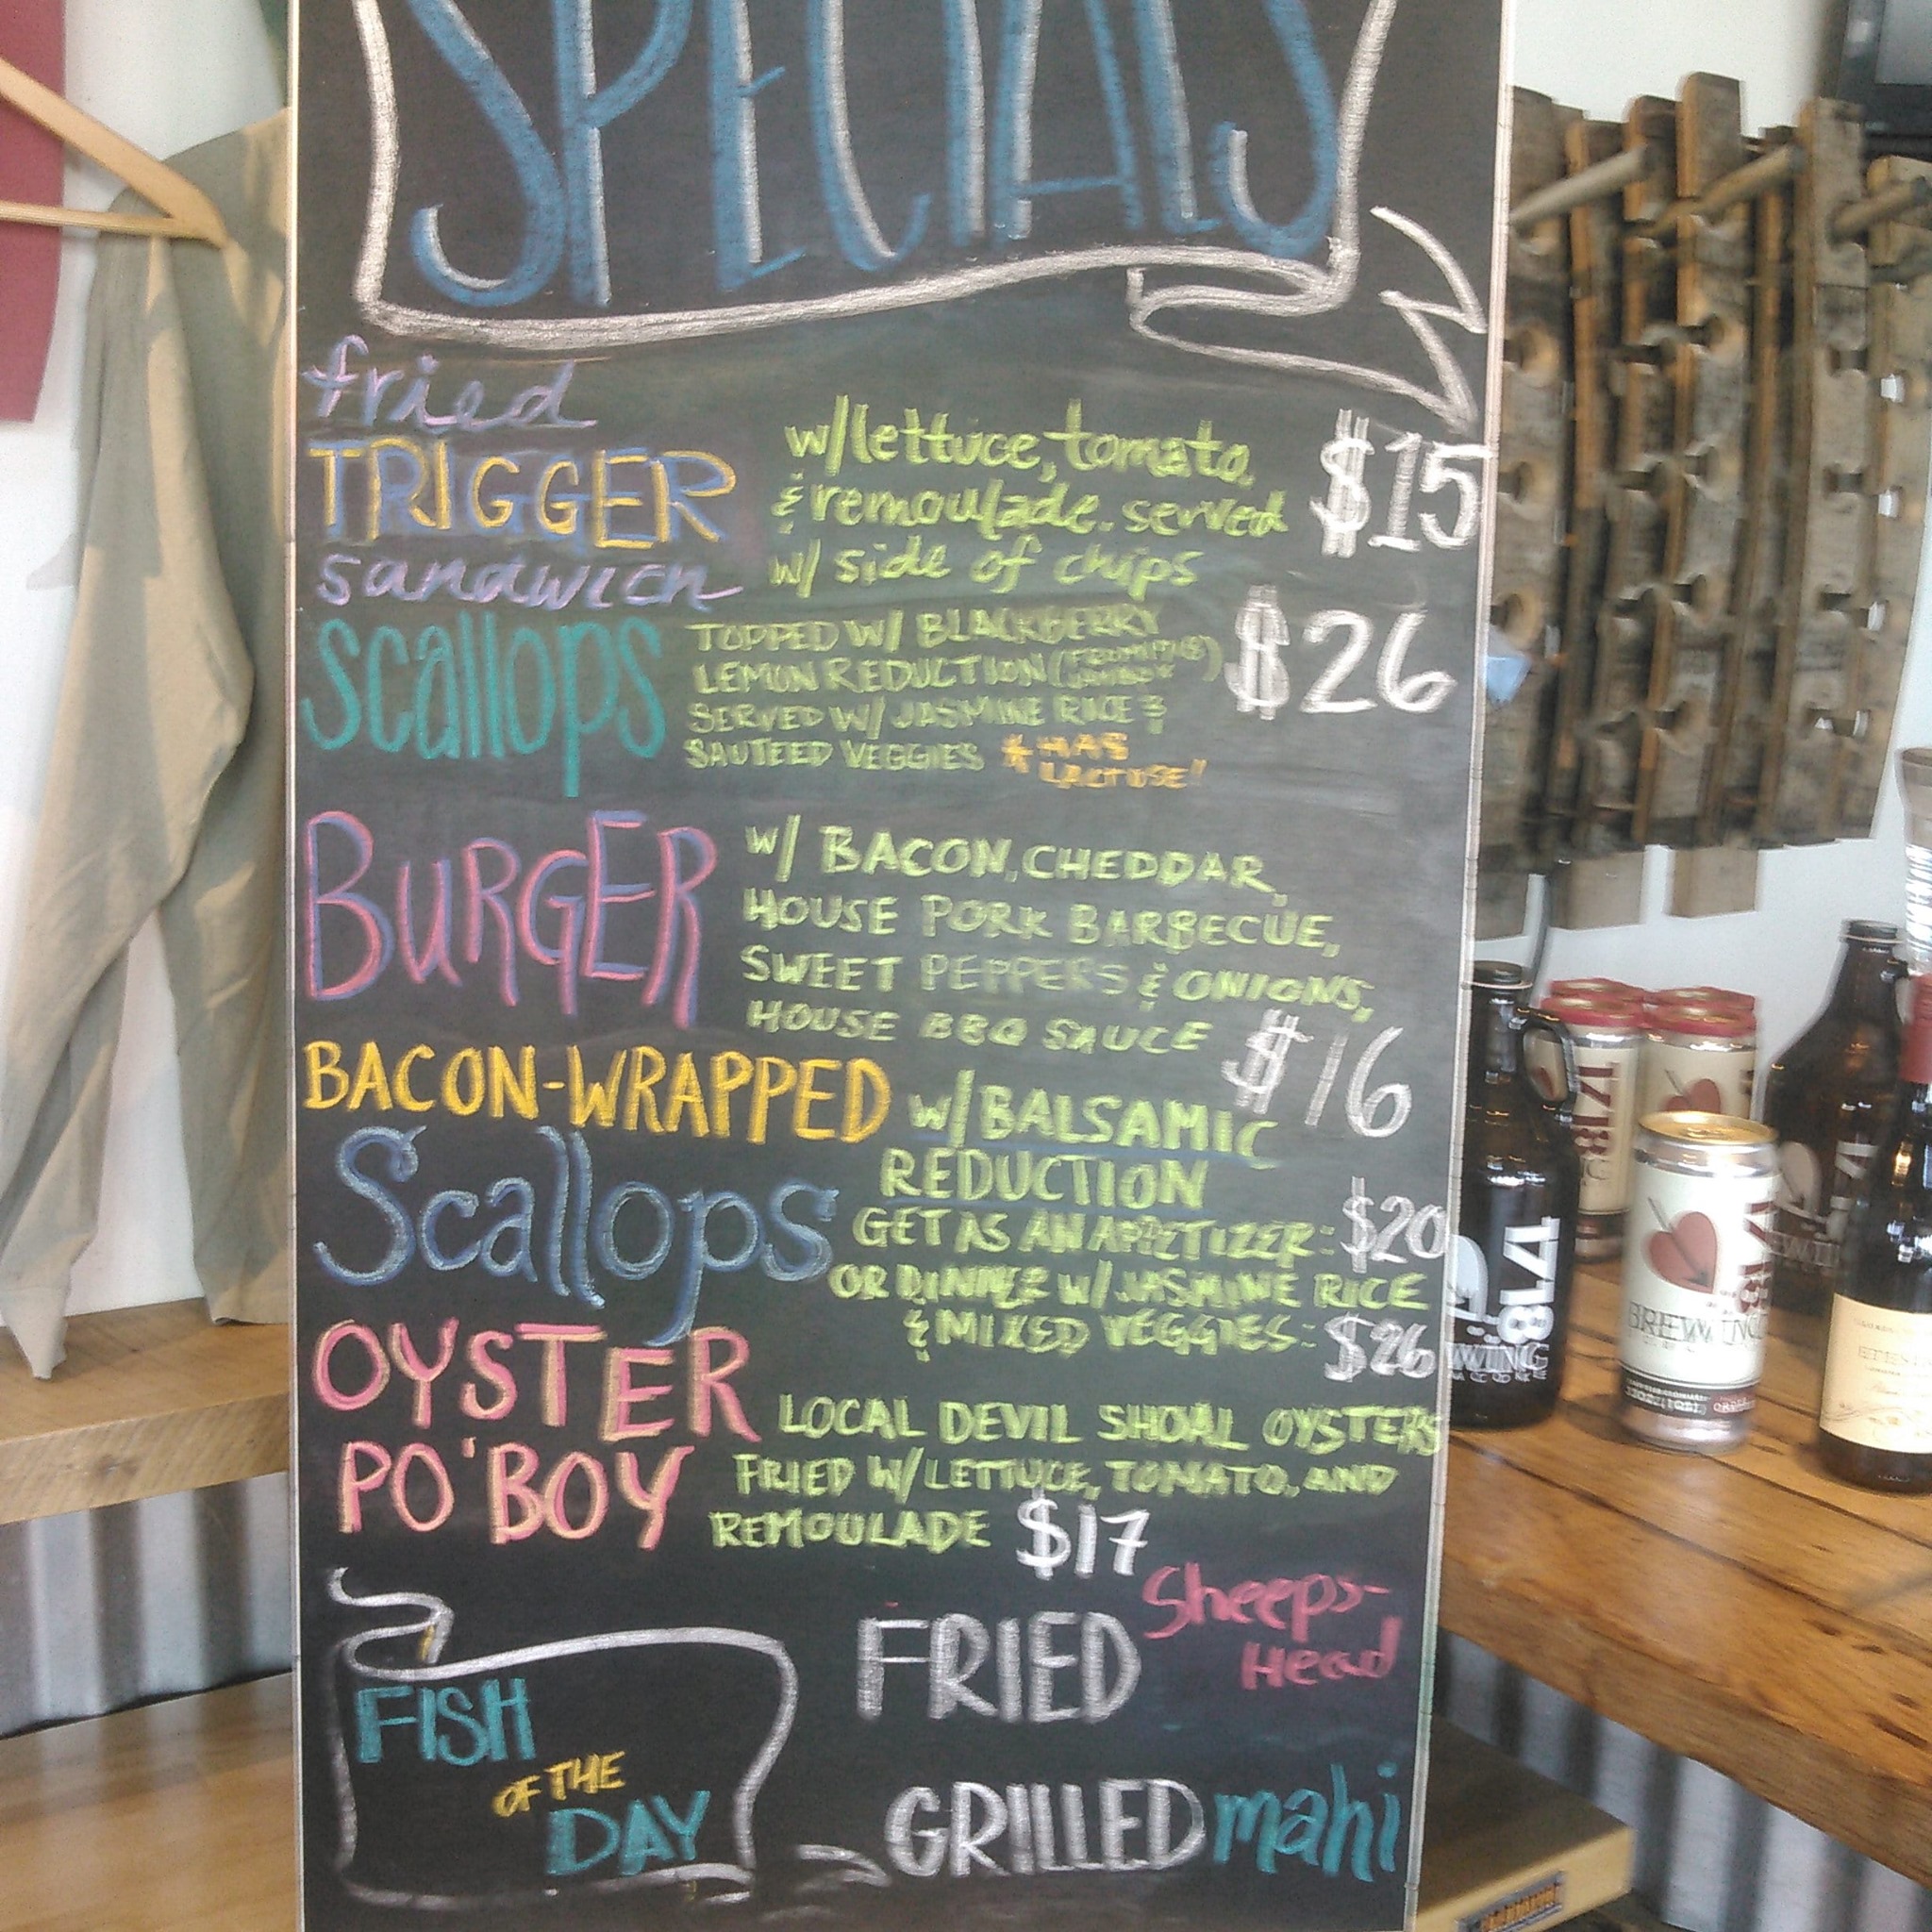 SPECIALS
fried
TRIGGER
sandwich
w/ lettuce, tomato,
& remoulade. served
w/ side of chips
$15
scallops
TOPPED W/ BLACKBERRY
LEMON REDUCTION
SERVED W/ JASMINE RICE &
SAUTEED VEGGIES * HAS
LACTOSE!
$26
BURGER
w/ BACON, CHEDDAR,
HOUSE PORK BARBECUE,
SWEET PEPPERS & ONIONS,
HOUSE BBQ SAUCE
$16
BACON-WRAPPED
Scallops
w/ BALSAMIC
REDUCTION
GET AS AN APPETIZER: $20
OR DINNER W/ JASMINE RICE
& MIXED VEGGIES: $26
OYSTER
PO'BOY
LOCAL DEVIL SHOAL OYSTERS
FRIED W/ LETTUCE, TOMATO, AND
REMOULADE $17
FISH
OF THE
DAY
FRIED Sheeps-
Head
GRILLED mahi
1718
BREWING